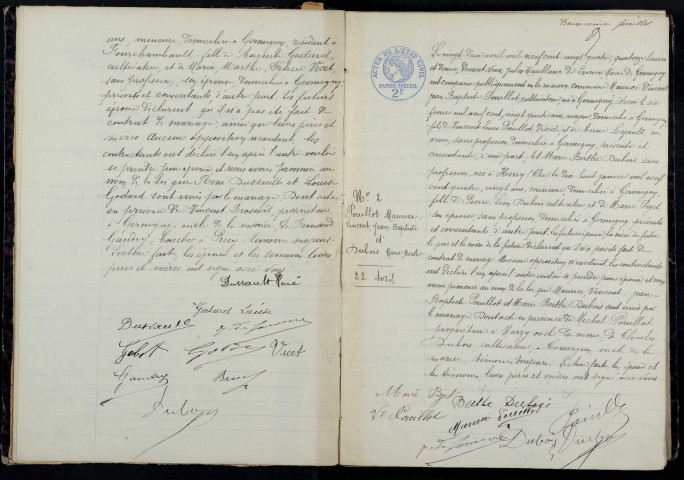 ans, mineure domiciliée à Germigny, résidant à
Fourchambault, fille de Auguste Godard,
cultivateur, et de Marie Marthe Félicie Vicet,
sans profession, son épouse domiciliés à Germigny
présents et consentants d'autre part. Les futurs
époux déclarent qu'il n'a pas été fait de
contrat de mariage, ainsi que leurs pères et
mères. Aucune opposition n'existant, les
contractants ont déclaré l'un après l'autre vouloir
se prendre pour époux et nous avons prononcé au
nom de la loi que René Dussault et Louise
Godard sont unis par le mariage. Dont acte
en présence de Vincent propriétaire
à Germigny oncle de la mariée, de Fernand
Gaudry, à Précy, témoins majeurs
Lecture faite, les époux et les témoins leurs
pères et mères ont signé avec nous
Dussault René
Godard Louise
Dussault
Godard Vicet
Gaudry
Dubois
Deuxième feuillet
ACTES DE L'ETAT CIVIL
PAPIER SPECIAL
2F
N° 2
Pouillot Maurice
Vincent Jean Baptiste
et
Dubois Marie Berthe
22 Avril
Le vingt deux avril mil neuf cent vingt quatre, quatorze heures
devant nous, Jules Maire de Germigny
ont comparu publiquement en la maison commune Maurice Vincent
Jean Baptiste Pouillot, cultivateur, né à Germigny, Cher le six
mil neuf cent, vingt quatre ans, majeur domicilié à Germigny
fils de Vincent Pouillot décédé, et de Marie
sans profession, domiciliée à Germigny, présente et
consentante d'une part, Et Marie Berthe Dubois, sans
profession, née à Herry (Cher) le dix huit janvier mil neuf
cent quatre, vingt ans, mineure domiciliée à Germigny
fille de Pierre Léon Dubois cultivateur, et de Marie Pizet
son épouse, sans profession, domiciliés à Germigny présents
et consentants d'autre part. Les futurs époux, la mère du futur,
le père et la mère de la future déclarent qu'il n'a pas été fait de
contrat de mariage. Aucune opposition n'existant, les contractants
ont déclaré l'un après l'autre vouloir se prendre pour époux et nous
avons prononcé au nom de la loi que Maurice, Vincent, Jean-
Baptiste Pouillot et Marie Berthe Dubois sont unis par
le mariage. Dont acte en présence de Michel Pouillot
propriétaire à Marzy oncle du marié, de Charles
Dubois cultivateur à oncle de la
mariée, témoins majeurs. Lecture faite, les époux et
les témoins, leurs pères et mères ont signé avec nous.
Marie Pizet Berthe Dubois
Vve Pouillot Maurice Pouillot
Dubois